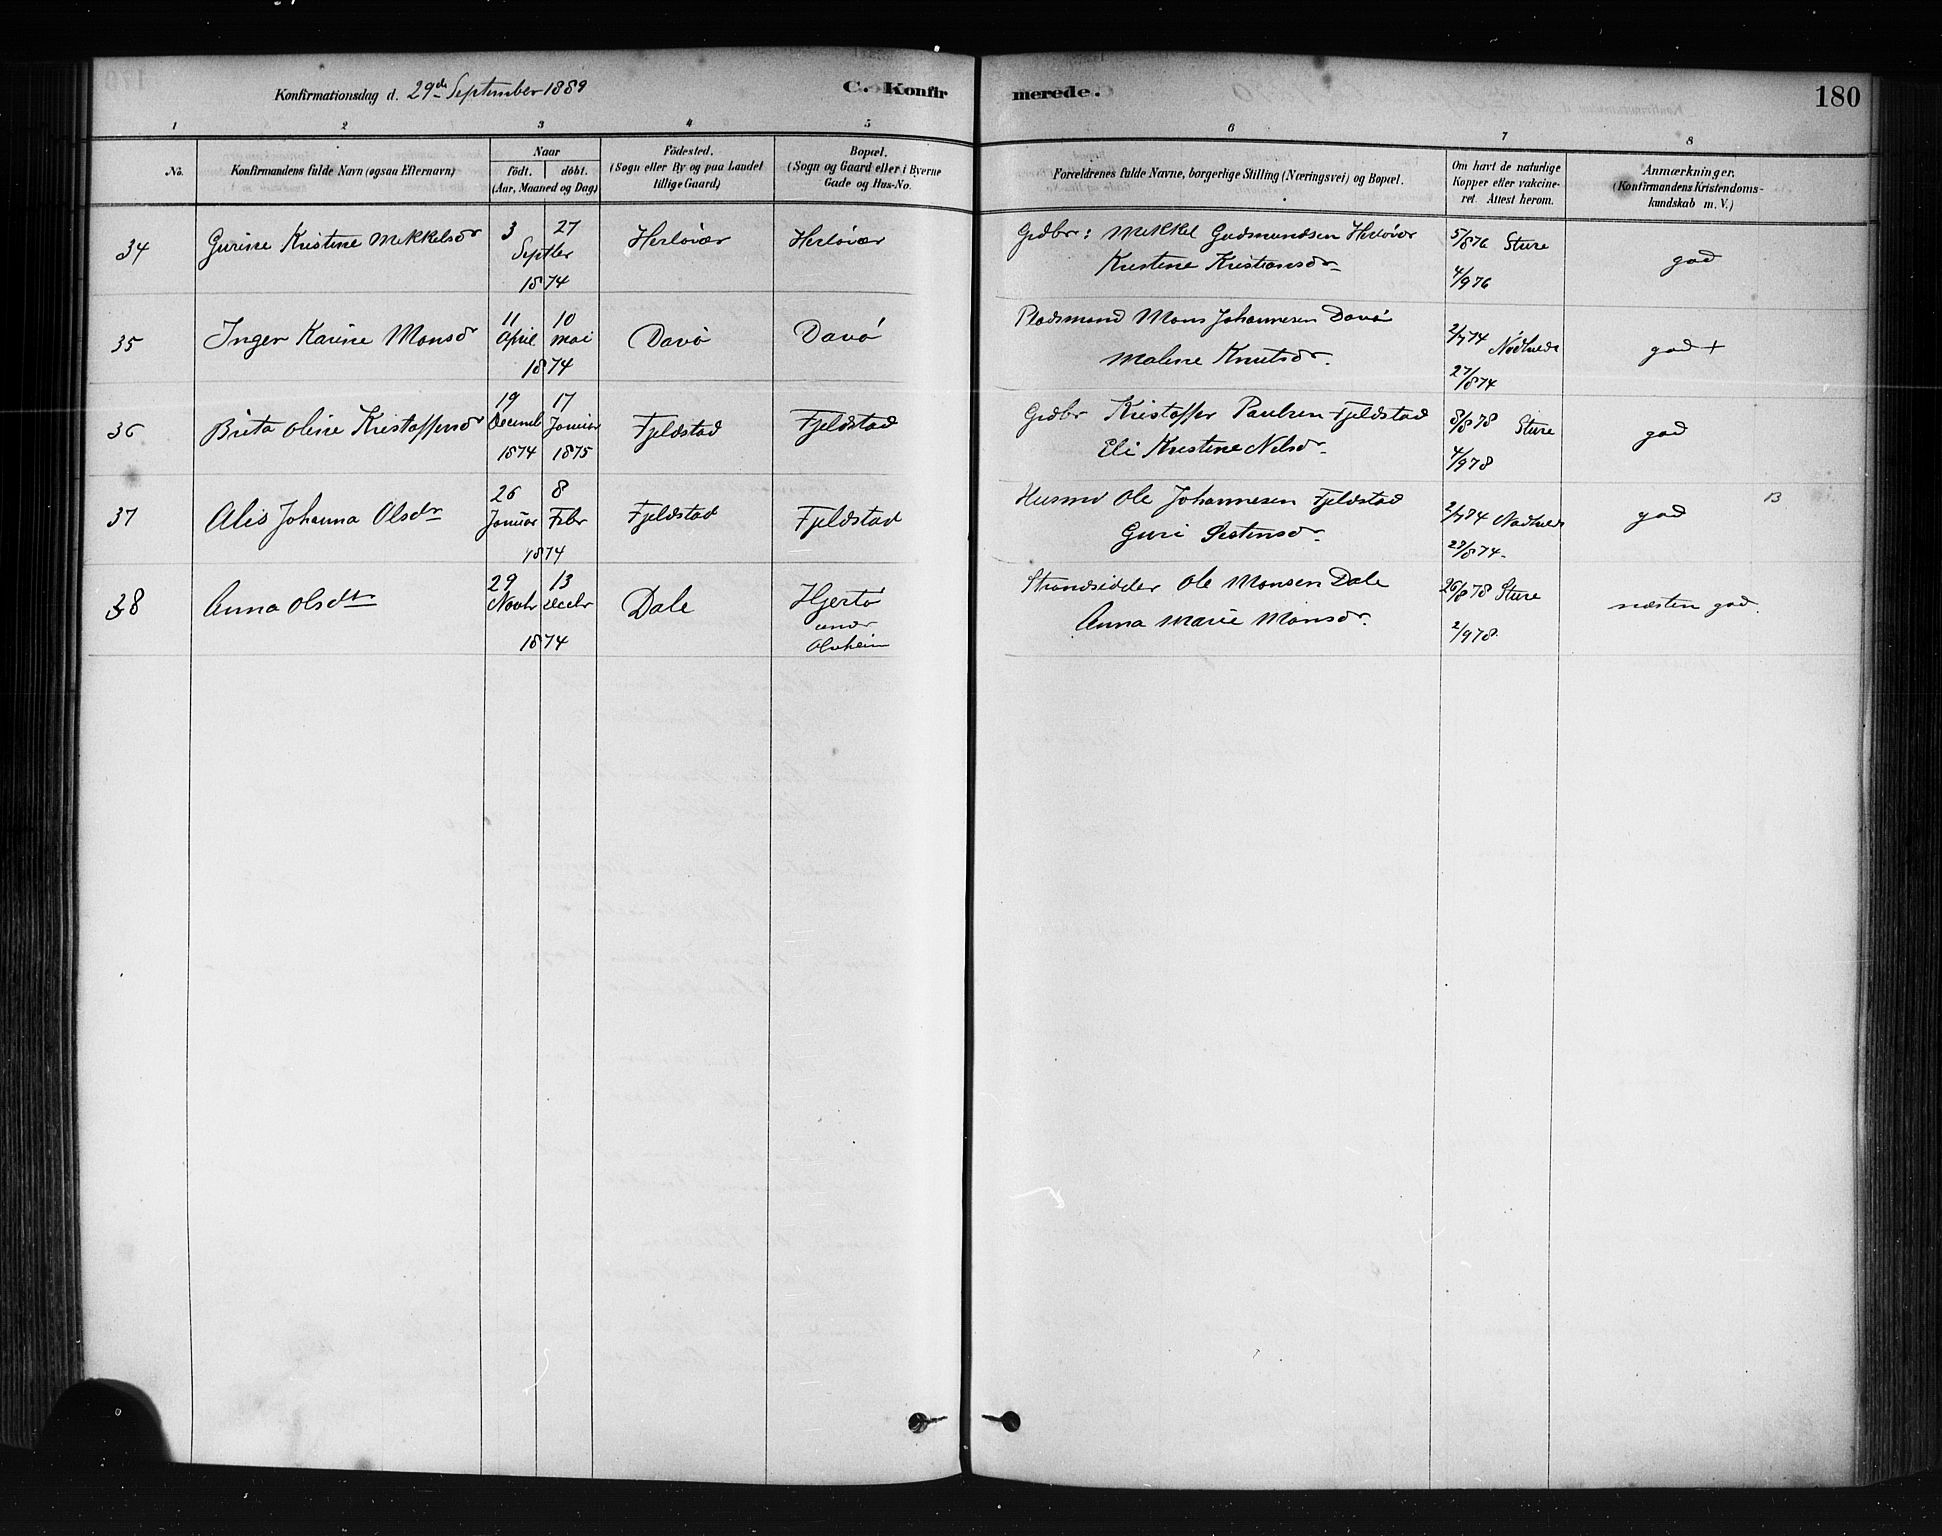 Konfirmationsdag d. 29de September 1889
C. Konfirmerede.
180
1 2 3 4 5 6 7 8
No.
Konfirmandens fulde Navn (ogsaa Efternavn)
Naar
födt. döbt.
(Aar, Maaned og Dag)
Födested.
(Sogn eller By og paa Landet
tillige Gaard)
Bopæl.
(Sogn og Gaard eller i Byerne
Gade og Hus-No.
Forældrenes fulde Navne, borgerlige Stilling (Næringsvei) og Bopæl.
Om havt de naturlige
Kopper eller vakcine-
ret. Attest herom.
Anmærkninger.
(Konfirmandens Kristendoms-
kundskab m. V.)
34 Gurine Kristine Mikkelsdr 3 27 Septber 1874 Herløvær Herløvær
Grdbr: Mikkel Gudmundsen Herløvær
Kristine Kristiansdr
5/8 76 Sture
4/9 76
god
35 Inger Karine Monsd 11 April 10 mai 1874 Davø Davø
Pladsmand Mons Johannesen Davø
Malene Knutsdr.
2/7 74 Nødtvedt
27/8 74
god +
36 Brita Oline Kristoffersdr 19 Decemb 1874 17 Januar 1875 Fjeldstad Fjeldstad
Grdbr Kristoffer Paulsen Fjeldstad
Eli Kristine Nilsd.
8/8 78 Sture
4/9 78
god
37 Alis Johanna Olsdr 26 Januar 8 Febr 1874 Fjeldstad Fjeldstad
Husmd Ole Johannesen Fjeldstad
Guri Østensdr.
2/7 74 Nødtvedt
27/8 74
god
B
38 Anna Olsdtr 29 Novbr 13 Decbr 1874 Dale Hjertø
under
Olsheim
Strandsidder Ole Monsen Dale
Anna Marie Monsdr.
26/8 78 Sture
2/9 78
næsten god.